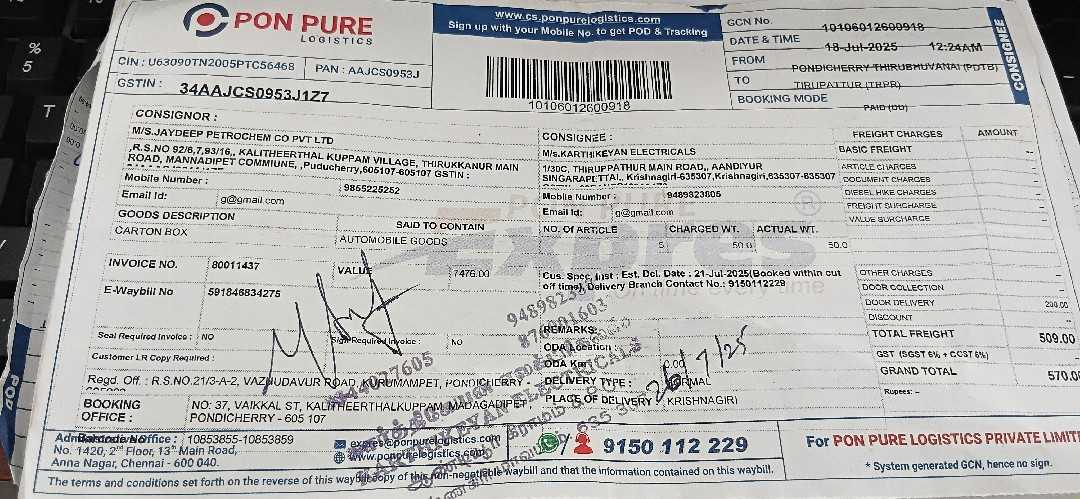 PON PURE
LOGISTICS
www.cs.ponpurelogistics.com
Sign up with your Mobile No. to get POD & Tracking
CIN : U63090TN2005PTC56468 PAN : AAJCS0953J
GSTIN : 34AAJCS0953J1Z7
10106012600918
GCN No. 10106012600918
DATE & TIME 18-Jul-2025 12:24AM
FROM PONDICHERRY THIRUBHUVANAI (PDTB)
TO TIRUPATTUR (TRPR)
BOOKING MODE PAID (DD)
CONSIGNEE
CONSIGNOR :
M/S.JAYDEEP PETROCHEM CO PVT LTD
,R.S.NO 92/6,7,93/16,, KALITHEERTHAL KUPPAM VILLAGE, THIRUKKANUR MAIN
ROAD, MANNADIPET COMMIUNE, ,Puducherry,605107-605107 GSTIN :
Mobile Number : 9865225252
Email Id: g@gmail.com
CONSIGNEE :
M/s.KARTHIKEYAN ELECTRICALS
1/30C, THIRUPPATHUR MAIN ROAD,, AANDIYUR
SINGARAPETTAI,, Krishnagiri-635307,Krishnagiri,635307-635307
Mobile Number : 9489823805
Email Id: g@gmail.com
FREIGHT CHARGES AMOUNT
BASIC FREIGHT –
ARTICLE CHARGES –
DOCUMENT CHARGES –
DIESEL HIKE CHARGES –
FREIGHT SURCHARGE –
VALUE SURCHARGE –
GOODS DESCRIPTION SAID TO CONTAIN
CARTON BOX AUTOMOBILE GOODS
NO. Of ARTICLE CHARGED WT. ACTUAL WT.
5 50.0 50.0
PON PURE
Expres
®
on time every time
INVOICE NO. 80011437 VALUE 7476.00
E-Waybill No 591846834275
Cus. Spec. Inst : Est. Del. Date : 21-Jul-2025(Booked within cut
off time), Delivery Branch Contact No.: 9150112229
OTHER CHARGES –
DOOR COLLECTION –
DOOR DELIVERY 200.00
DISCOUNT
TOTAL FREIGHT 509.00
GST (SGST 6% + CCST 6%)
GRAND TOTAL 570.0
Rupees: –
Seal Required Invoice : NO Sign Required Invoice : NO
Customer LR Copy Required :
REMARKS:
ODA Location
ODA Km
DELIVERY TYPE : NORMAL
PLACE OF DELIVERY KRISHNAGIRI
/7/25
KARTHIKEYAN ELECTRICALS
Regd. Off. : R.S.NO.21/3-A-2, VAZHUDAVUR ROAD, KURUMAMPET, PONDICHERRY -
BOOKING
OFFICE :
NO: 37, VAIKKAL ST, KALITHEERTHALKUPPAM, MADAGADIPET,
PONDICHERRY - 605 107
10853855-10853859
No. 1420, 2nd Floor, 13th Main Road,
Anna Nagar, Chennai - 600 040.
expres@ponpurelogistics.com
www.ponpurelogistics.com
9150 112 229
For PON PURE LOGISTICS PRIVATE LIMITE
* System generated GCN, hence no sign.
The terms and conditions set forth on the reverse of this waybill copy of this non-negotiable waybill and that the information contained on this waybill.